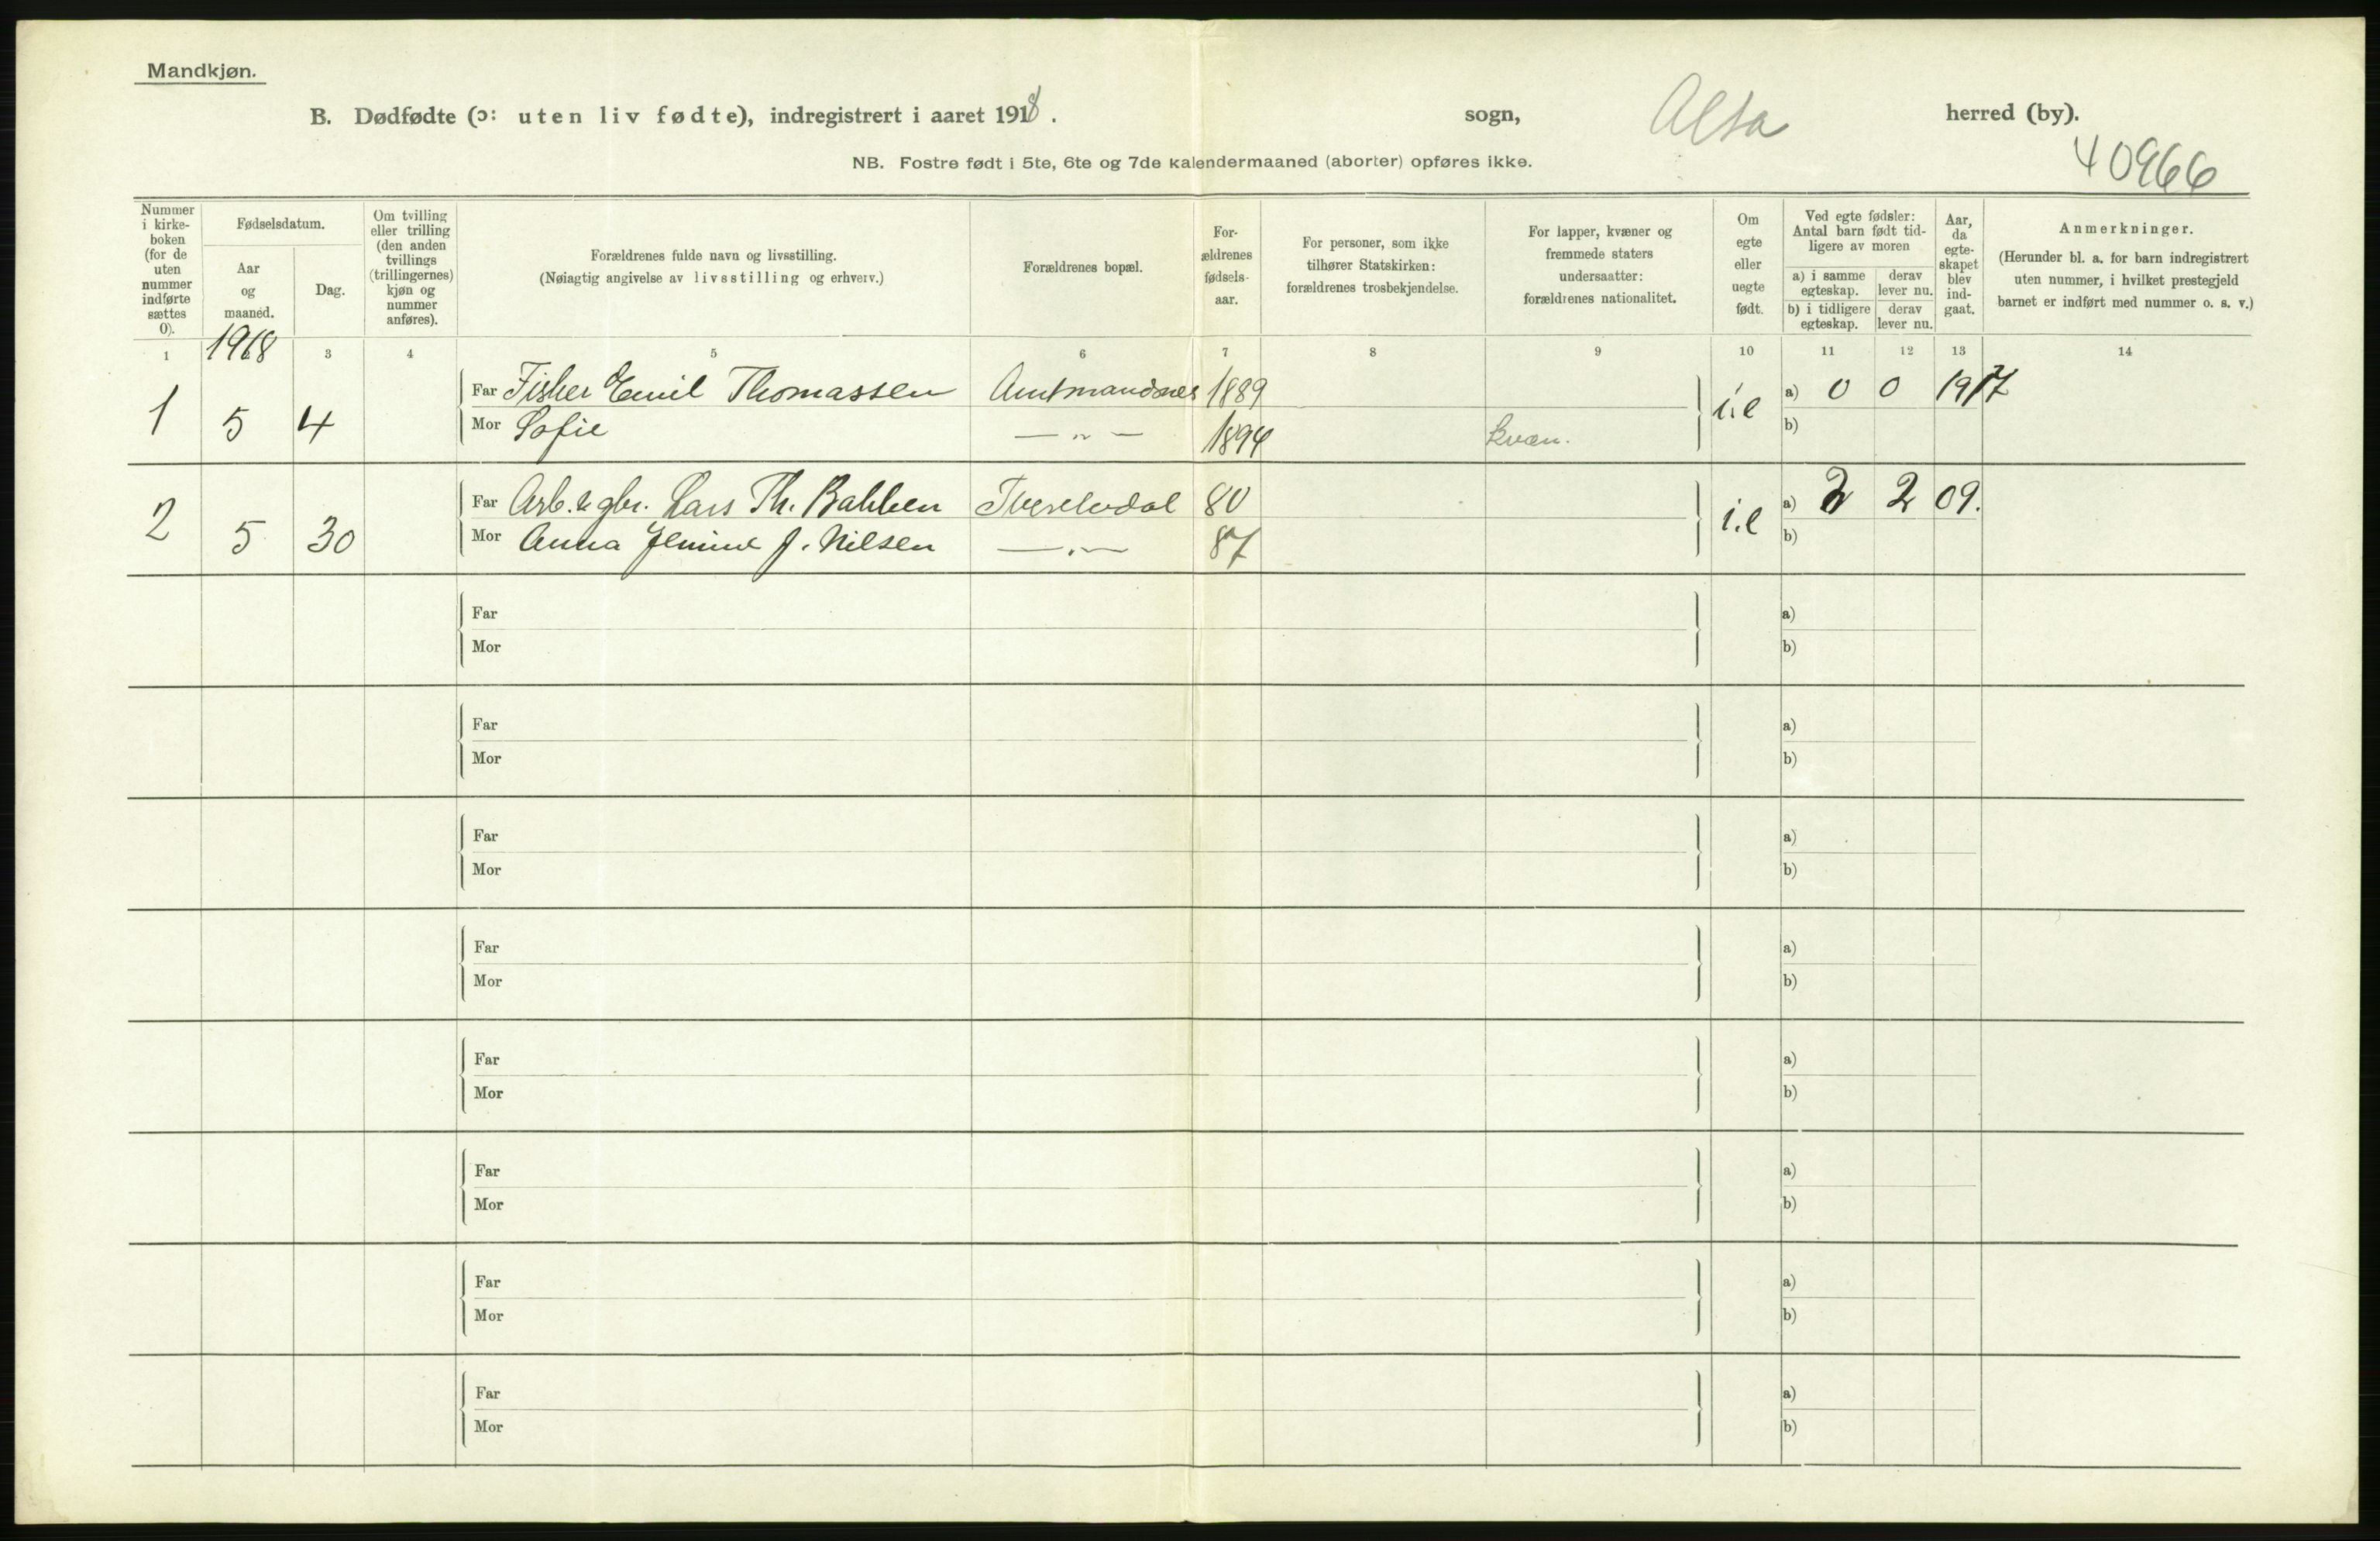 Mandkjøn.
B. Dødfødte (ɔ: uten liv fødte), indregistrert i aaret 1918. sogn, Alta herred (by).
NB. Fostre født i 5te, 6te og 7de kalendermaaned (aborter) opføres ikke.
40966
Nummer i kirke-boken (for de uten nummer indførte sættes 0).
Fødselsdatum.
Aar og maaned.
Dag.
Om tvilling eller trilling (den anden tvillings (trillingernes) kjøn og nummer anføres).
Forældrenes fulde navn og livsstilling.
(Nøiagtig angivelse av livsstilling og erhverv.)
Forældrenes bopæl.
For-ældrenes fødsels-aar.
For personer, som ikke tilhører Statskirken: forældrenes trosbekjendelse.
For lapper, kvæner og fremmede staters undersaatter: forældrenes nationalitet.
Om egte eller uegte født.
Ved egte fødsler: Antal barn født tid-ligere av moren
a) i samme egteskap. derav lever nu.
b) i tidligere egteskap. derav lever nu.
Aar, da egte-skapet blev ind-gaat.
Anmerkninger.
(Herunder bl. a. for barn indregistrert uten nummer, i hvilket prestegjeld barnet er indført med nummer o. s. v.)
1 1918 3 4 5 6 7 8 9 10 11 12 13 14
1 5 4 Far Fisker Emil Thomassen Amtmandsnes 1889 i.e a) 0 0 1917
Mor Sofie —„— 1894 kvæn. b)
2 5 30 Far Arb. & gbr. Lars Th. Bakken Tverelvdal 80 i.e a) 2 2 09.
Mor Anna Jemine J. Nilsen —„— 87 b)
Far a)
Mor b)
Far a)
Mor b)
Far a)
Mor b)
Far a)
Mor b)
Far a)
Mor b)
Far a)
Mor b)
Far a)
Mor b)
Far a)
Mor b)